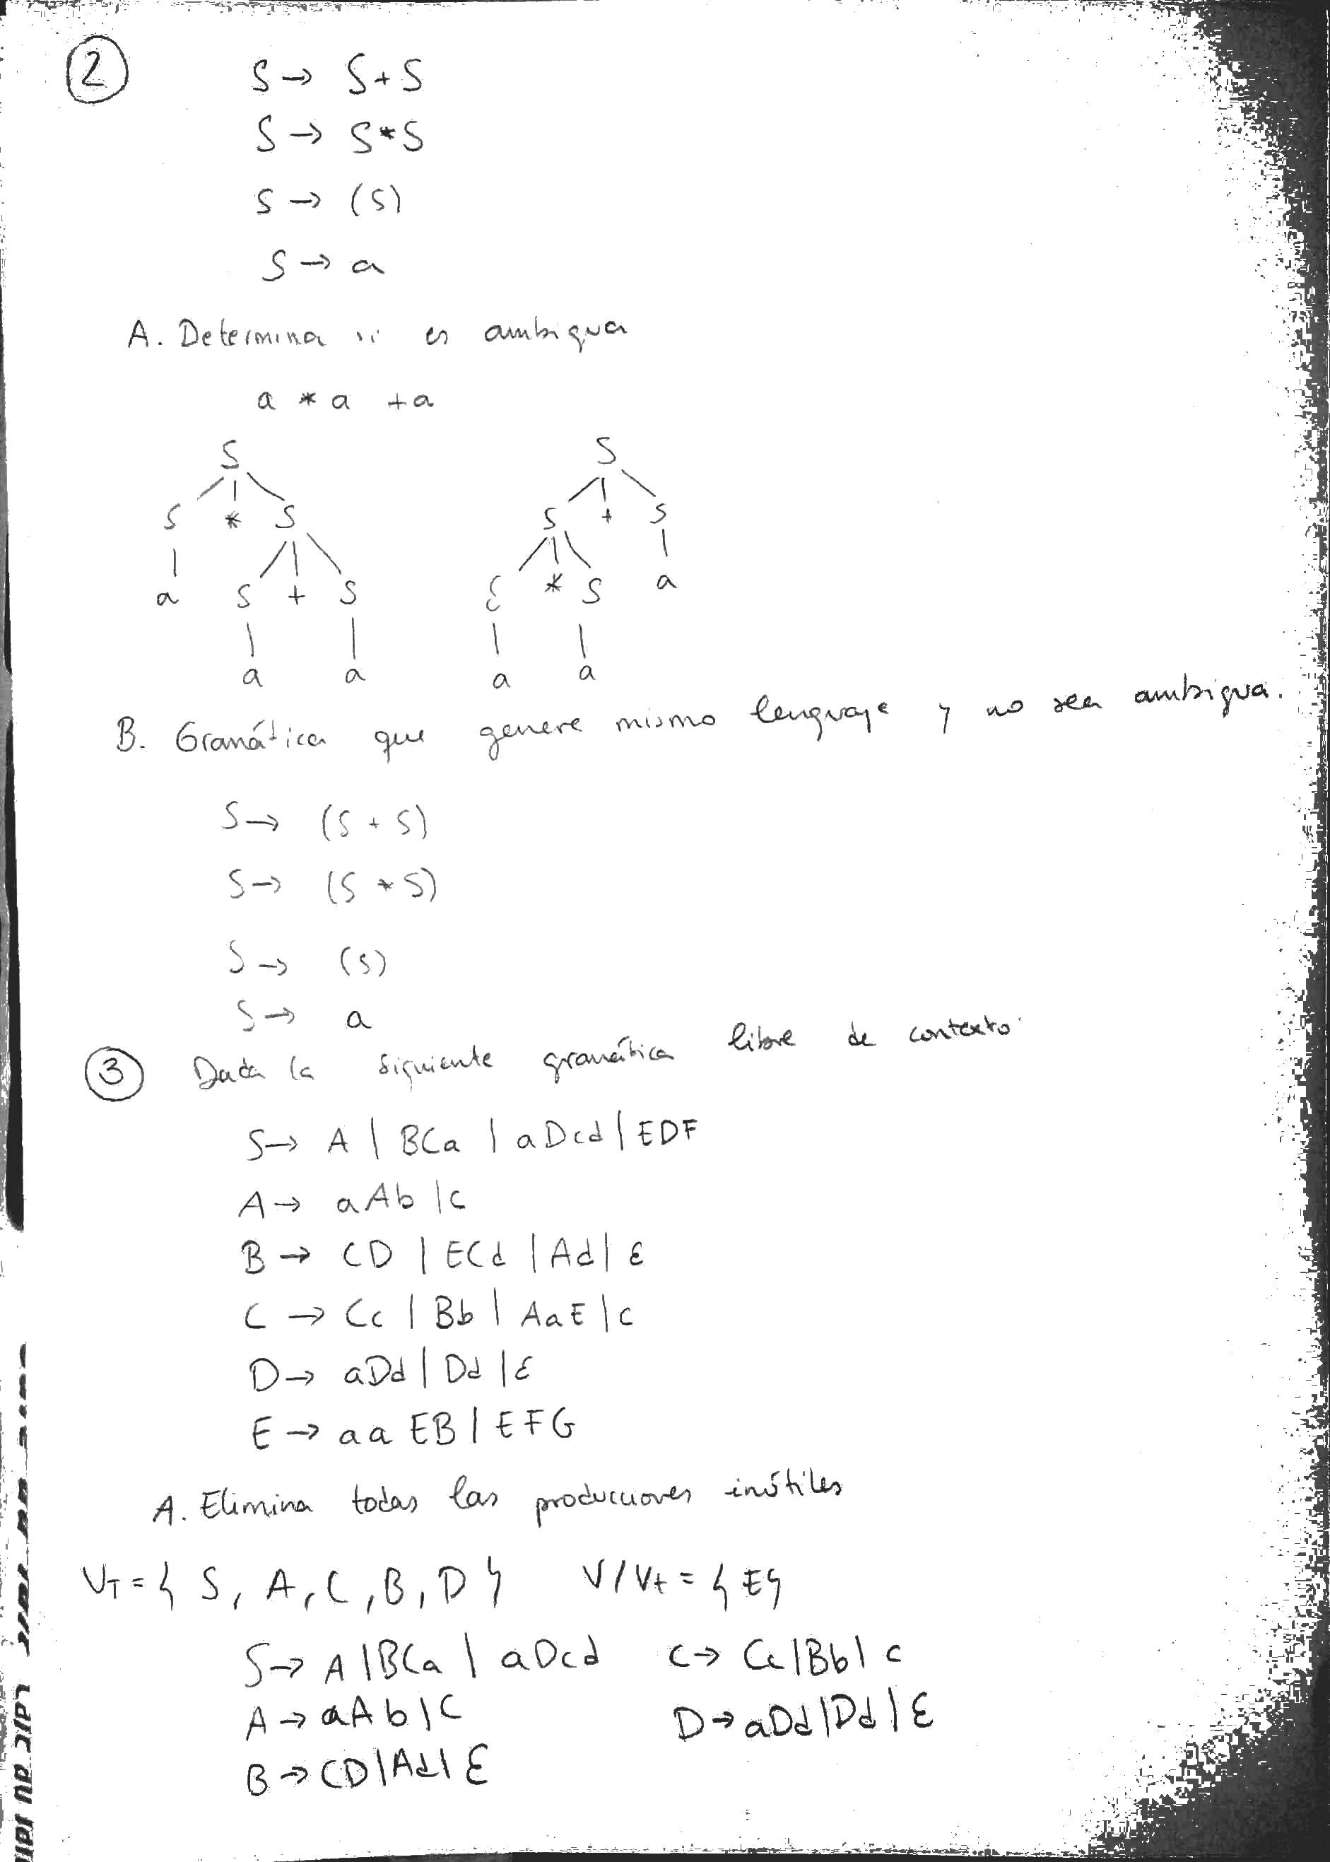 2
S → S + S
S → S * S
S → (S)
S → a
A. Determina si es ambigua
a * a + a
S S
S * S S + S
a S + S S * S a
a a a a
B. Gramática que genere mismo lenguaje y no sea ambigua.
S → (S + S)
S → (S * S)
S → (S)
S → a
3 Dada la siguiente gramática libre de contexto
S → A | BCa | aDcd | EDF
A → aAb | c
B → CD | ECd | Ad | ε
C → Cc | Bb | AaE | c
D → aDd | Dd | ε
E → aaEB | EFG
A. Elimina todas las producciones inútiles
VT = { S, A, C, B, D } V / Vt = { E }
S → A | BCa | aDcd C → Cc | Bb | c
A → aAb | c D → aDd | Dd | ε
B → CD | Ad | ε